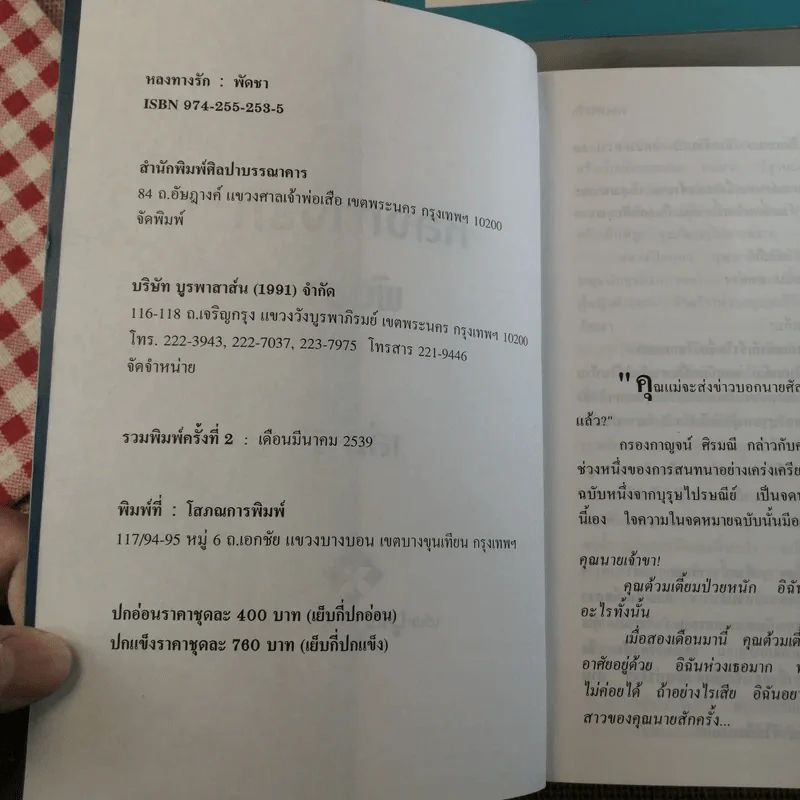 หลงทางรัก : พัดชา
ISBN 974-255-253-5
สำนักพิมพ์ศิลปาบรรณาคาร
84 ถ.อัษฎางค์ แขวงศาลเจ้าพ่อเสือ เขตพระนคร กรุงเทพฯ 10200
จัดพิมพ์
บริษัท บูรพาสาส์น (1991) จำกัด
116-118 ถ.เจริญกรุง แขวงวังบูรพาภิรมย์ เขตพระนคร กรุงเทพฯ 10200
โทร. 222-3943, 222-7037, 223-7975 โทรสาร 221-9446
จัดจำหน่าย
รวมพิมพ์ครั้งที่ 2 : เดือนมีนาคม 2539
พิมพ์ที่ : โสภณการพิมพ์
117/94-95 หมู่ 6 ถ.เอกชัย แขวงบางบอน เขตบางขุนเทียน กรุงเทพฯ
ปกอ่อนราคาชุดละ 400 บาท (เย็บกี่ปกอ่อน)
ปกแข็งราคาชุดละ 760 บาท (เย็บกี่ปกแข็ง)
"คุณแม่จะส่งข่าวบอกนายศัล
แล้ว?"
กรองกาญจน์ ศิรมณี กล่าวกับ
ช่วงหนึ่งของการสนทนาอย่างเคร่งเครีย
ฉบับหนึ่งจากบุรุษไปรษณีย์ เป็นจด
นี้เอง ใจความในจดหมายฉบับนั้นมี
คุณนายเจ้าขา!
คุณต้วมเตี้ยมป่วยหนัก อิฉัน
อะไรทั้งนั้น
เมื่อสองเดือนมานี้ คุณต้วมเตี้
อาศัยอยู่ด้วย อิฉันห่วงเธอมาก
ไม่ค่อยได้ ถ้าอย่างไรเสีย อิฉันอยา
สาวของคุณนายสักครั้ง...